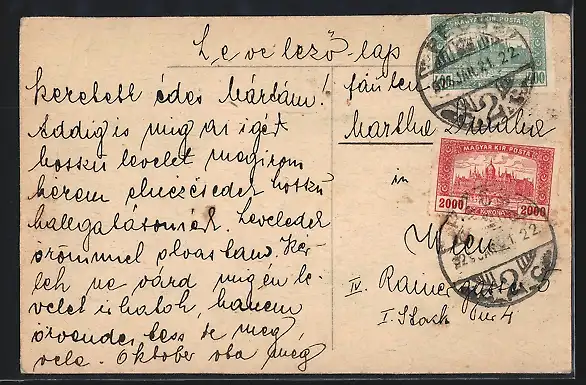 Levelező-lap
kedves édes Mártám!
Addig is mig az igért
hosszú levelet megirom
kérem elnézésedet hosszú
hallgatásomért. Leveledet
örömmel olvastam. Kér-
lek ne várd mig én le
velet irhatok, hanem
örvendeztess te meg
vele. Oktober óta még
Fräulein
Martha
in
Wien
IV. Rainergasse
I. Stock Tür 4
MAGYAR KIR. POSTA
400
MAGYAR KIR. POSTA
2000 KORONA 2000